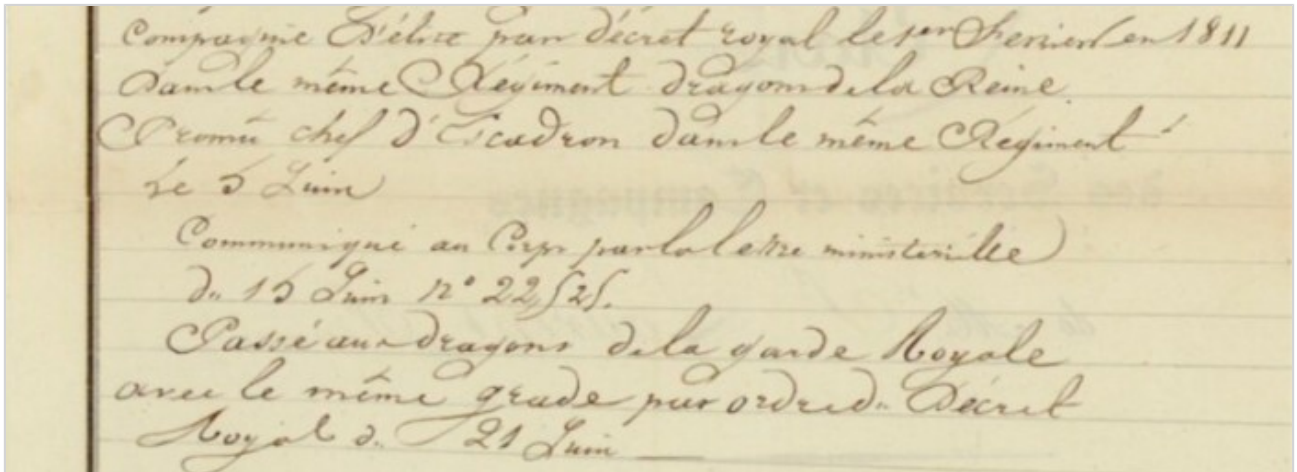 Compagnie d'élite par décret royal le 1er Fevrier en 1811
dans le même Régiment dragons de la Reine
Promû chef d'Escadron dans le même Régiment
le 5 Juin
Communiqué au Corps par la lettre ministerielle
du 15 Juin n°
Passé aux dragons de la garde Royale
avec le même grade par ordre du Décret
Royal du 21 Juin